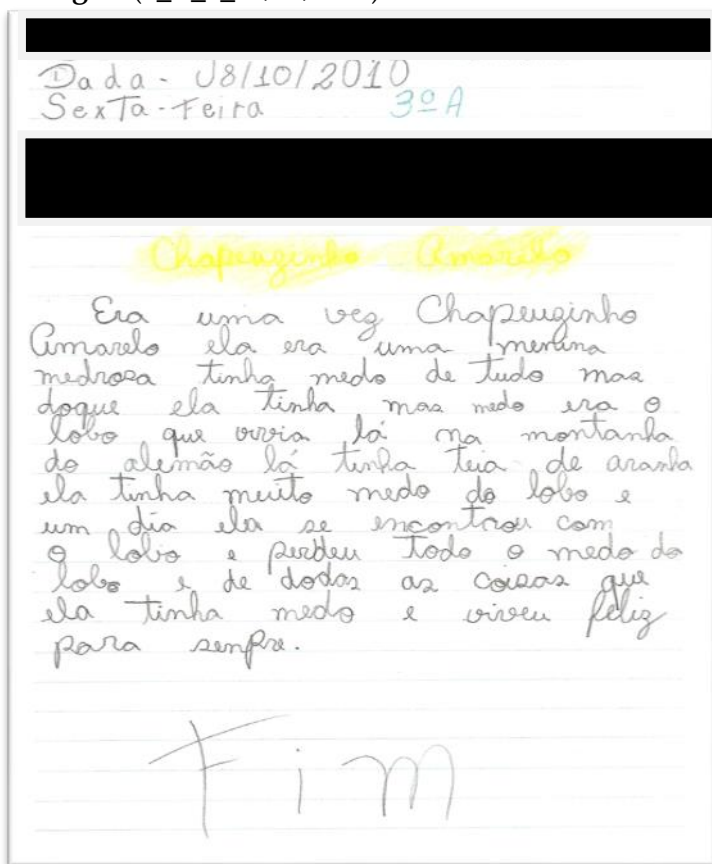 Dada - 08/10/2010
Sexta-Feira 3º A
Chapeuginho Amarelo
Era uma veg Chapeuginho
Amarelo ela era uma menina
medrosa tinha medo de tudo mas
doque ela tinha mas medo era o
lobo que vivia lá na montanha
do alemão lá tinha teia de aranha
ela tinha muito medo do lobo e
um dia ela se encontrou com
o lobo e perdeu todo o medo do
lobo e de dodas as coisas que
ela tinha medo e viveu feliz
para senpre.
Fim